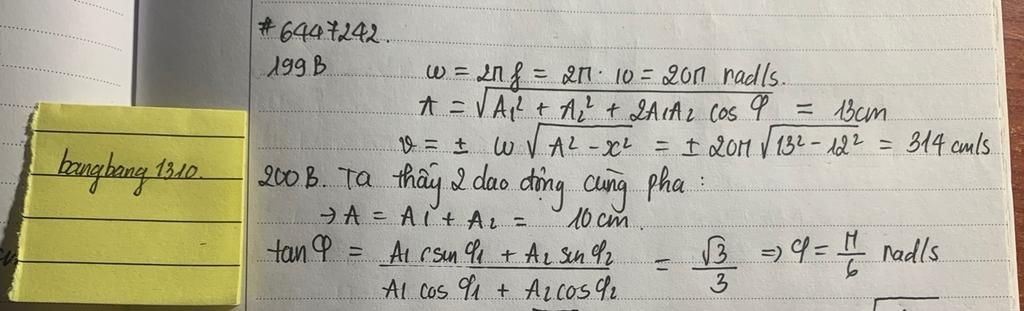 #6447242.
199B
ω = 2π f = 2π · 10 = 20π rad/s.
A = √A₁² + A₂² + 2A₁A₂ cos φ = 13cm
v = ± ω √A² - x² = ± 20π √13² - 12² = 314 cm/s
bangbang1310.
200B. Ta thấy 2 dao động cùng pha :
→ A = A₁ + A₂ = 10cm.
tan φ = A₁ sin φ₁ + A₂ sin φ₂ / A₁ cos φ₁ + A₂ cos φ₂ = √3 / 3 ⇒ φ = π / 6 rad/s